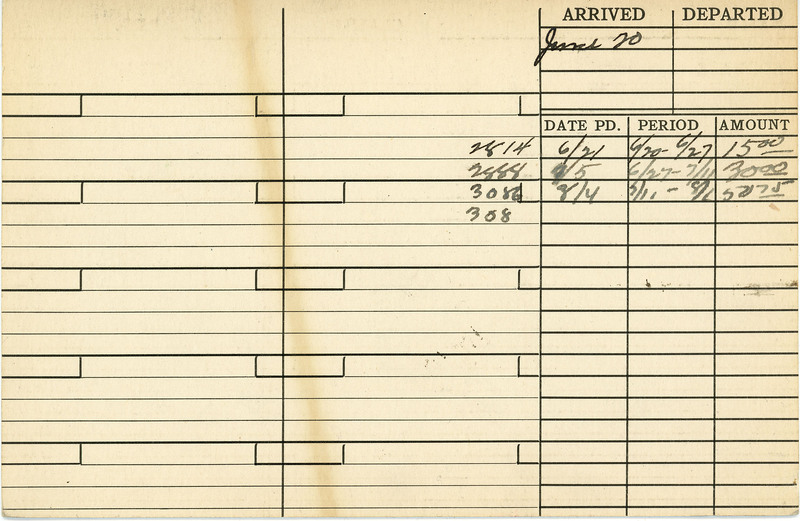 ARRIVED DEPARTED
June 20
DATE PD. PERIOD AMOUNT
2814 6/21 6/20- 6/27 15 00
2888 7/5 6/27- 7/11 30 00
3086 8/4 7/11 - 8/1
308